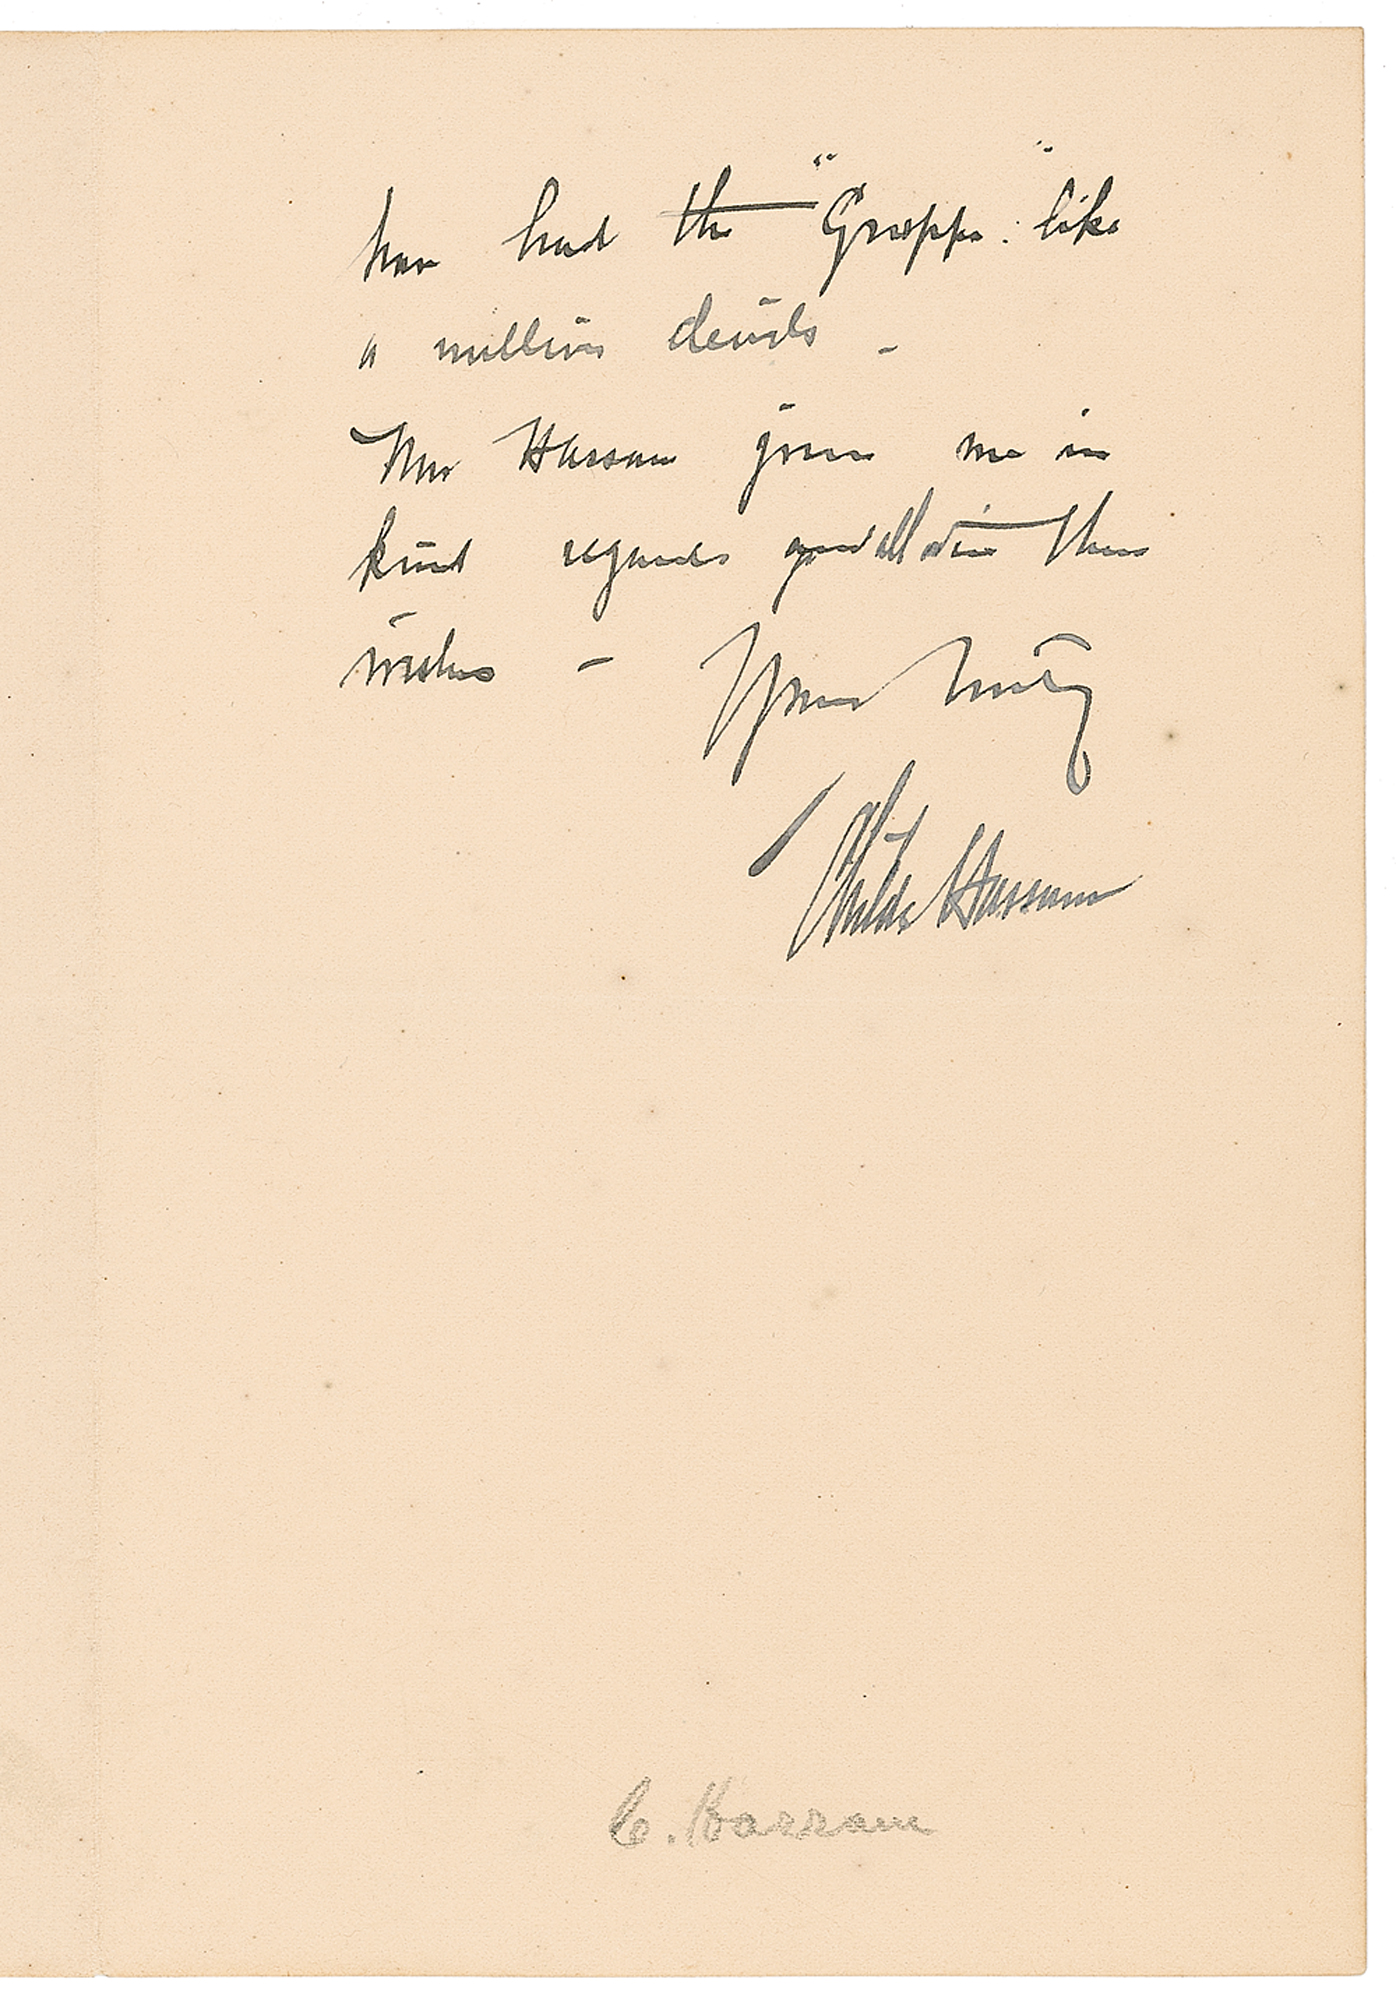 have had the "Grippe" like
a million devils -
Mrs Hassam joins me in
kind regards and all
wishes - Yours truly
Childe Hassam
C. Hassam